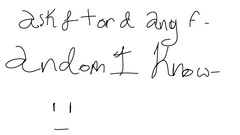 ask f t or d ang f.
andom I know-